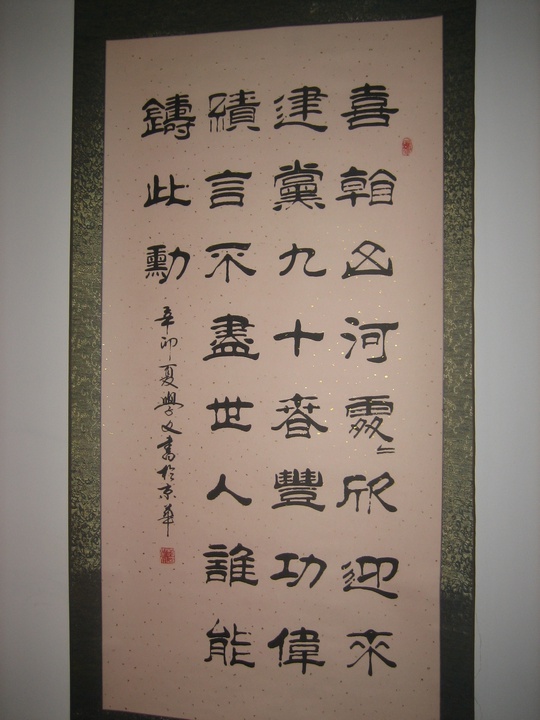 喜看山河處〻欣迎來
建黨九十春豐功偉
績言不盡世人誰能
鑄此勳
辛卯夏學文書於京華